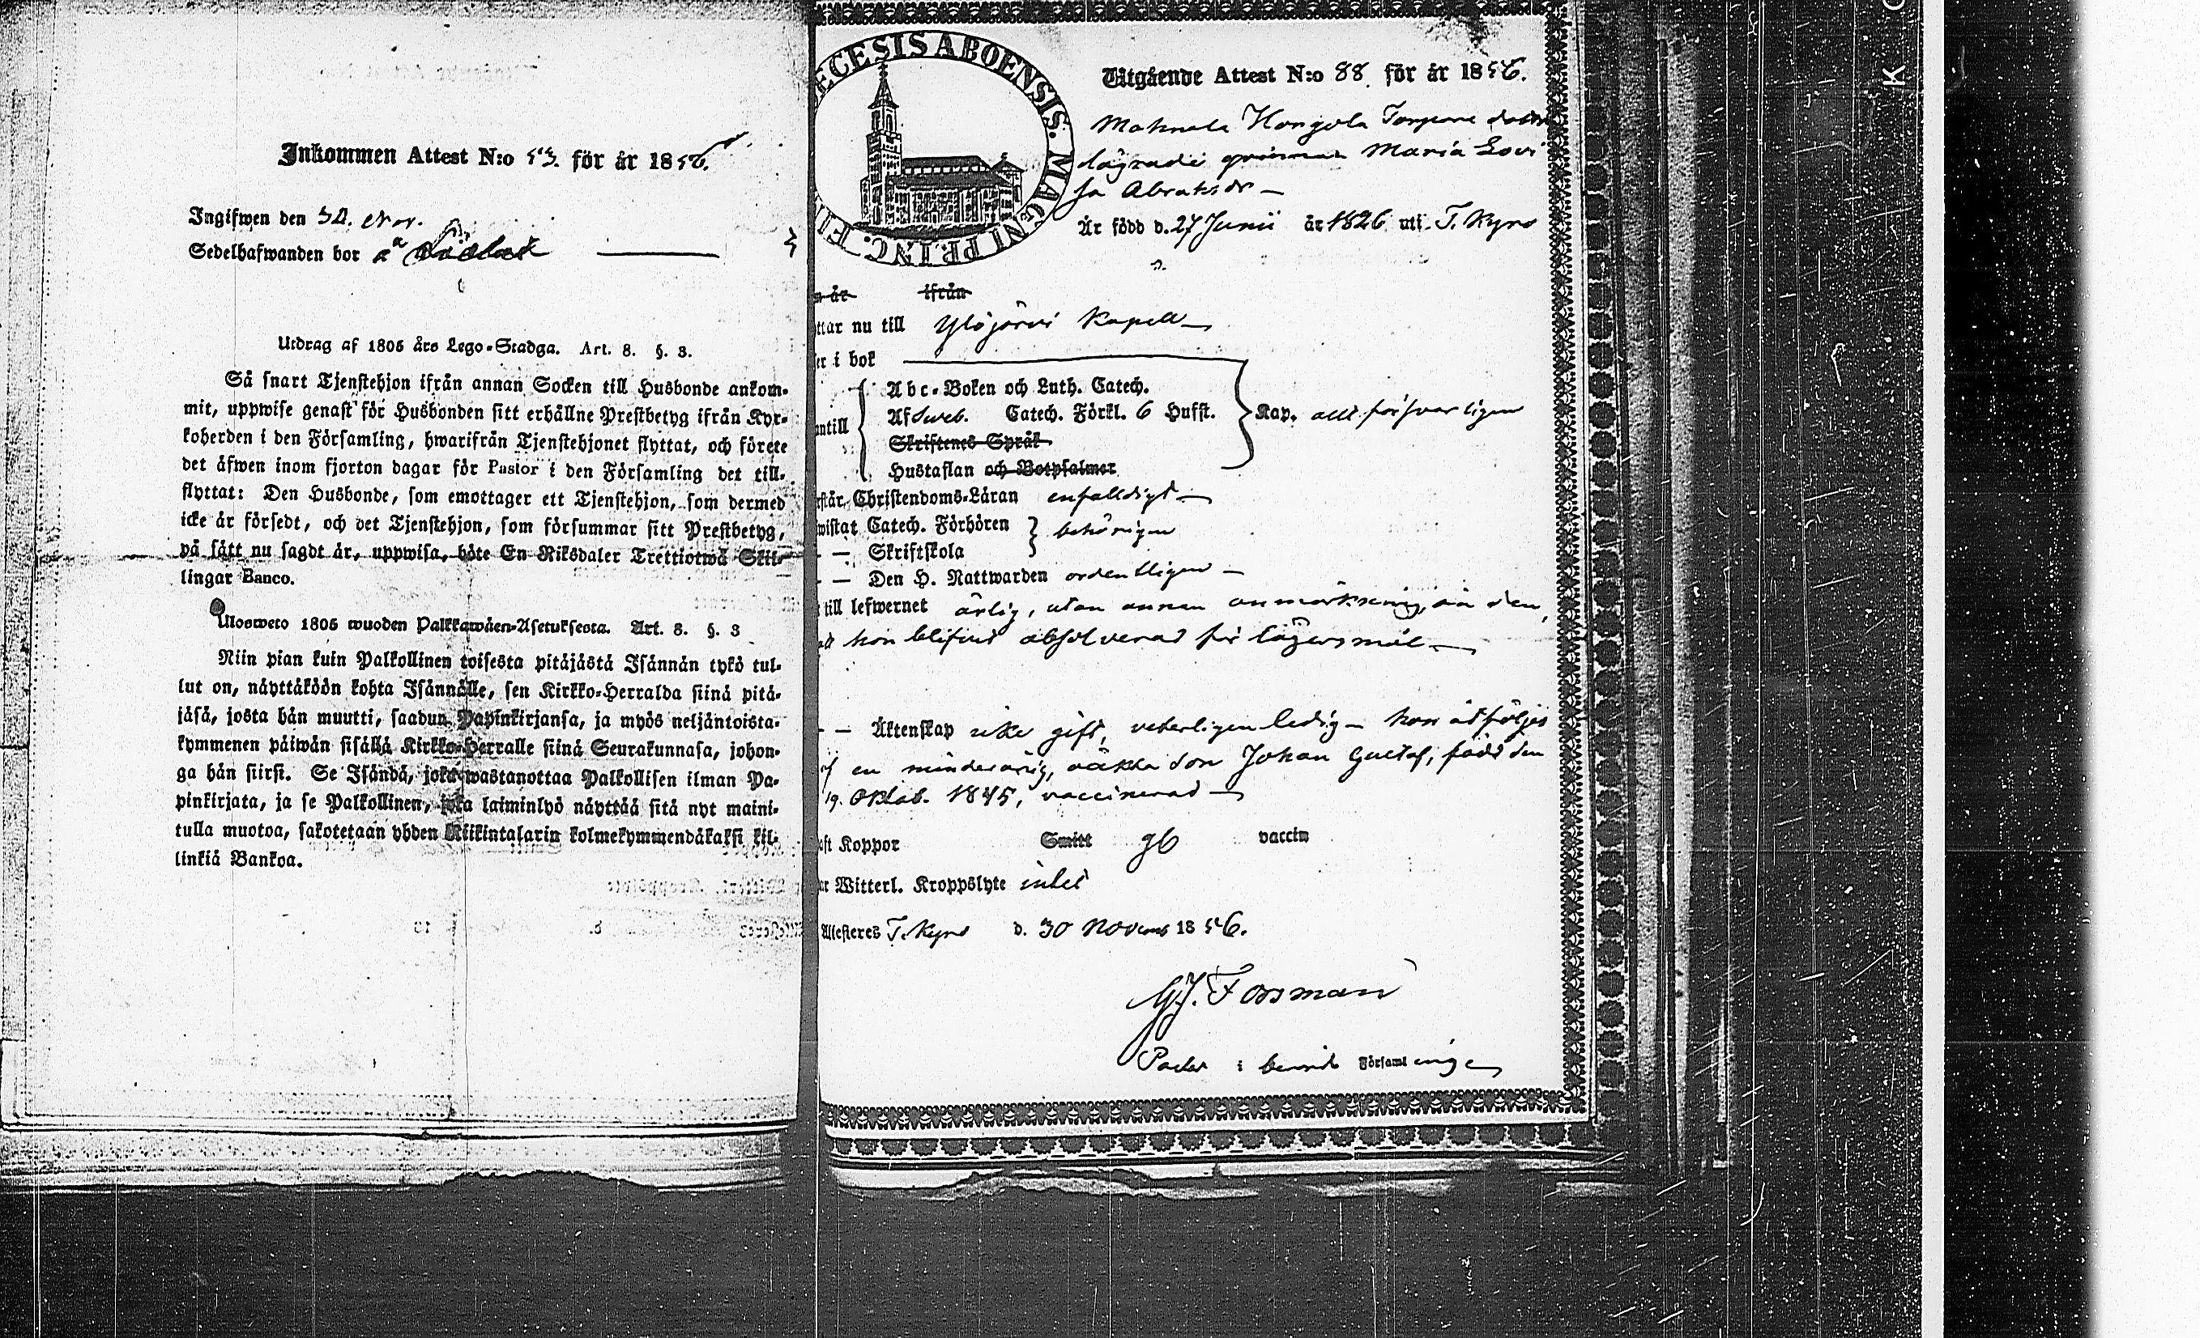 Inkommen Attest N:o 53. för år 1856.
Ingifwen den 30. Nov.
Sedelhafwanden bor å
Utdrag af 1805 års Lego-Stadga. Art. 8. §. 3.
Så snart Tjenstehjon ifrån annan Socken till Husbonde ankom-
mit, uppwise genast för Husbonden sitt erhållne Prestbetyg ifrån Kyr-
koherden i den Församling, hwarifrån Tjenstehjonet flyttat, och förete
det äfwen inom fjorton dagar för Pastor i den Församling det till-
flyttat: Den Husbonde, som emottager ett Tjenstehjon, som dermed
icke är försedt, och det Tjenstehjon, som försummar sitt Prestbetyg,
på sätt nu sagdt är, uppwisa, böte En Riksdaler Trettiotwå Skil-
lingar Banco.
Ulosweto 1805 wuoden Palkkawäen-Asetuksesta. Art. 8. §. 3
Niin pian kuin Palkollinen toisesta pitäjästä Isännän tykö tul-
lut on, näyttäköön kohta Isännälle, sen Kirkko-Herralda siinä pitä-
jäsä, josta hän muutti, saadun Papinkirjansa, ja myös neljäntoista-
kymmenen päiwän sisällä Kirkko-Herralle siinä Seurakunnasa, johon-
ga hän siirsi. Se Isändä, joka wastanottaa Palkollisen ilman Pa-
pinkirjata, ja se Palkollinen, joka laiminlyö näyttää sitä nyt maini-
tulla muotoa, sakotetaan yhden Riikintalarin kolmekymmendäkaksi kil-
linkiä Bankoa.
ECESIS ABOENSIS. MAGNI PRINC. FI
Utgående Attest N:o 88. för år 1856.
Mahnala Hongola Torpare dotter
lägrade qvinnan Maria Lovi
sa Abrahsdr —
Är född d. 27 Junii år 1826 uti T. Kyro
n år ifrån
ttar nu till Ylöjärvi Kapell —
er i bok
Abc-Boken och Luth. Catech.
Af Sweb. Catech. Förkl. 6 Hufst.
ntill Kap. allt försvarligen
Skriftenes Språk
Hustaflan och Botpsalmer
rstår Christendoms-Läran enfalldigt —
wistat Catech. Förhören behörigen
— Skriftskola
— Den H. Nattwarden ordentligen —
till lefwernet ärlig, utan annan anmärkning, än den,
att hon blifvit absolverad för lägersmål —
— Äktenskap icke gift, veterligen ledig — hon åtföljes
af en minderårig, oäkta son Johan Gustaf, född den
19. Oktob. 1845, vaccinerad —
ft Koppor Smitt gb vaccin
ar Witterl. Kroppslyte intet
Attesteres T. Kyro d. 30 Novemb 1856.
G. J. Forsman
Pastor i benämd Församlingen